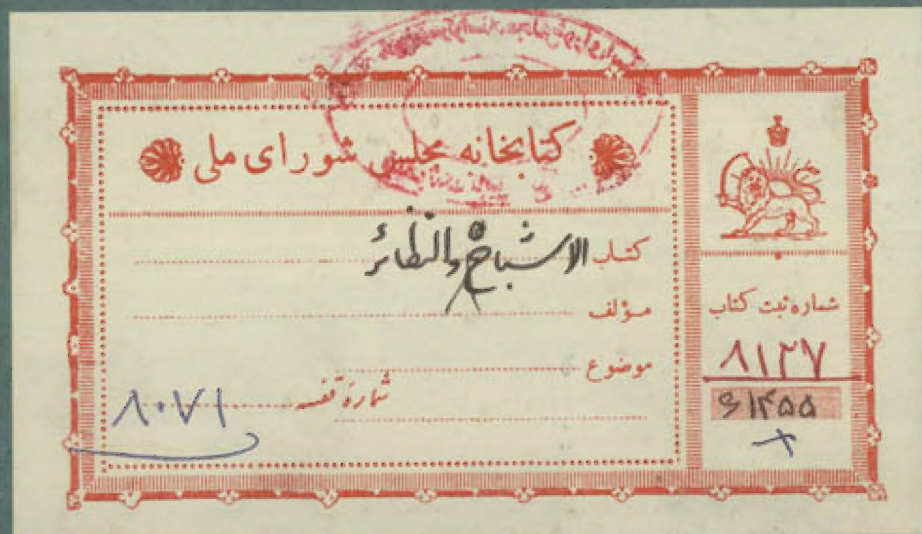 کتابخانه مجلس شورای ملی
کتاب الاشباح والنظائر
مؤلف
موضوع
شماره قفسه ۸۰۷۱
شماره ثبت کتاب
۸۱۲۷
۶۱۴۵۵